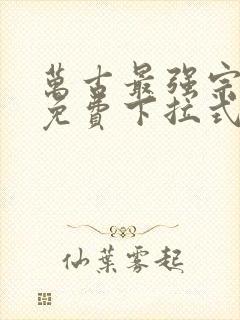 萬古最强宗
免費下拉式
仙葉雾起